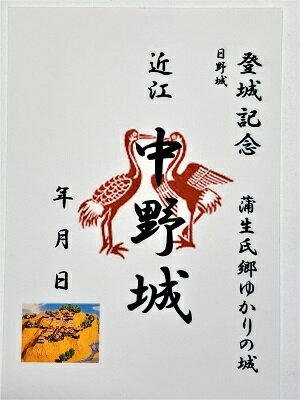 登城記念
日野城
蒲生氏郷ゆかりの城
近江
中野城
年月日